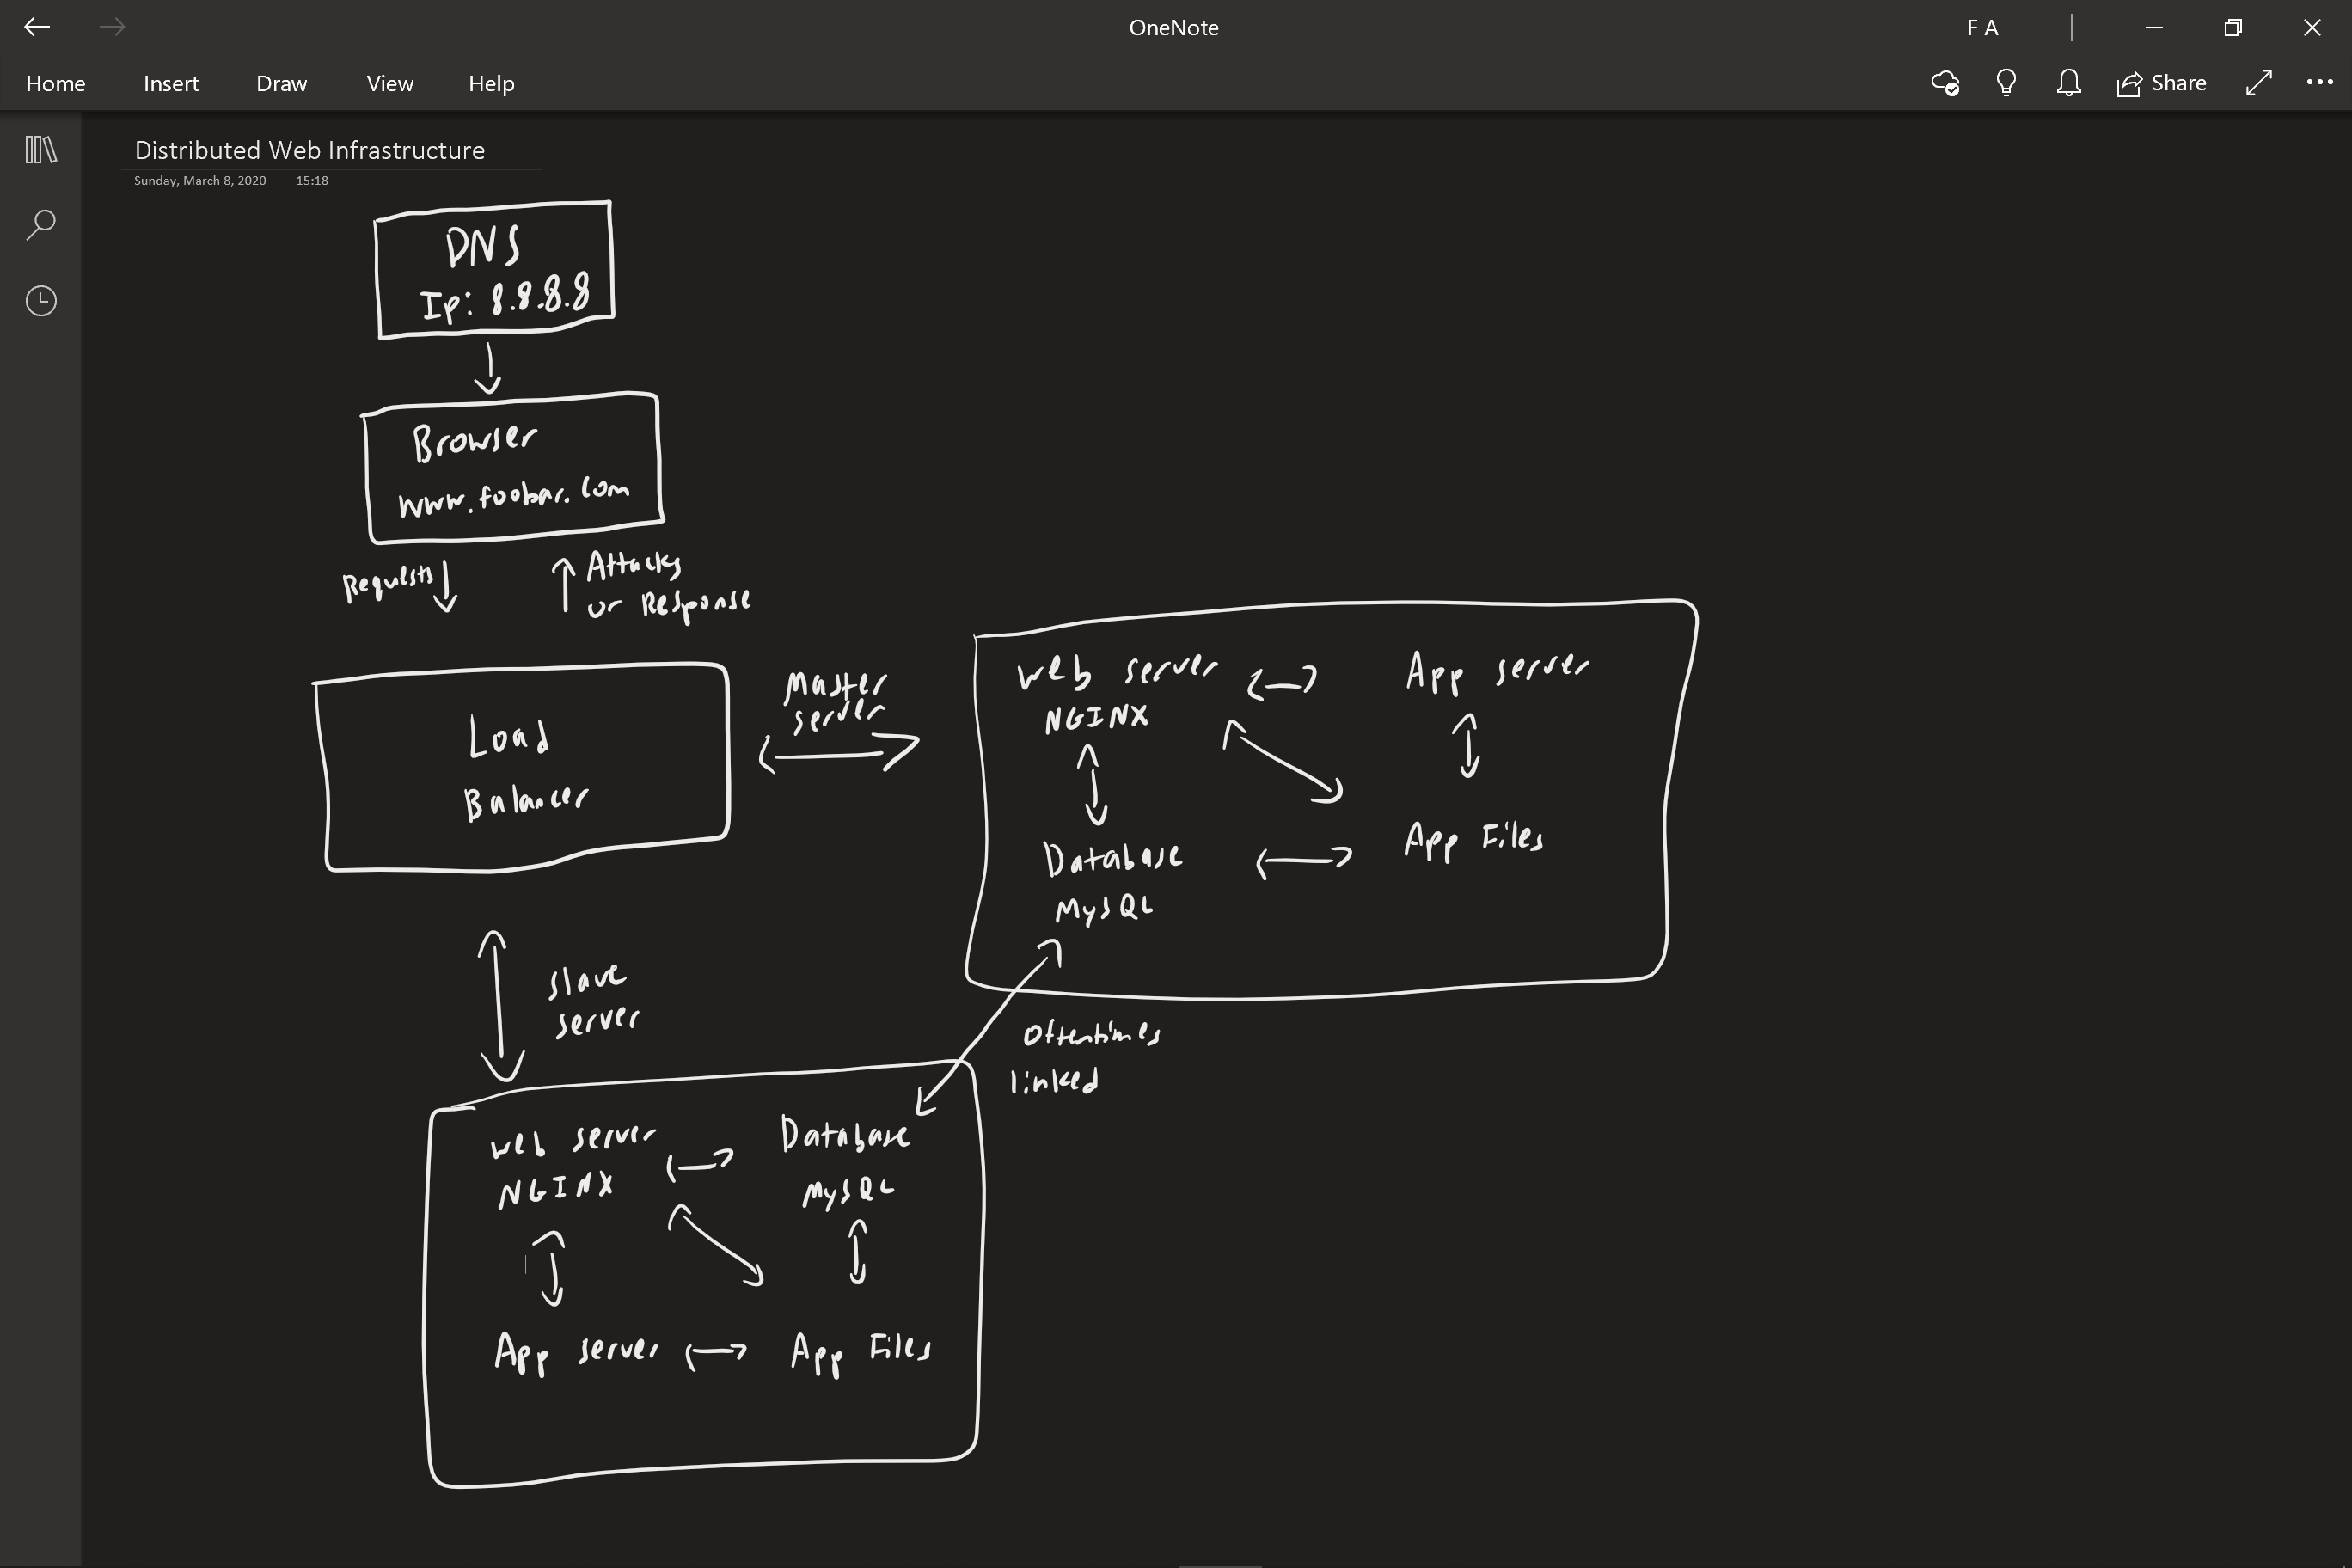 OneNote
F A
Home Insert Draw View Help
Share
Distributed Web Infrastructure
Sunday, March 8, 2020 15:18
DNS
Ip: 8.8.8.8
Browser
www.foobar.com
Requests
Attacks
or Response
Load
Balancer
Master
server
web server
NGINX
App server
Database
MySQL
App Files
slave
server
Oftentimes
linked
web server
NGINX
Database
MySQL
App server
App Files